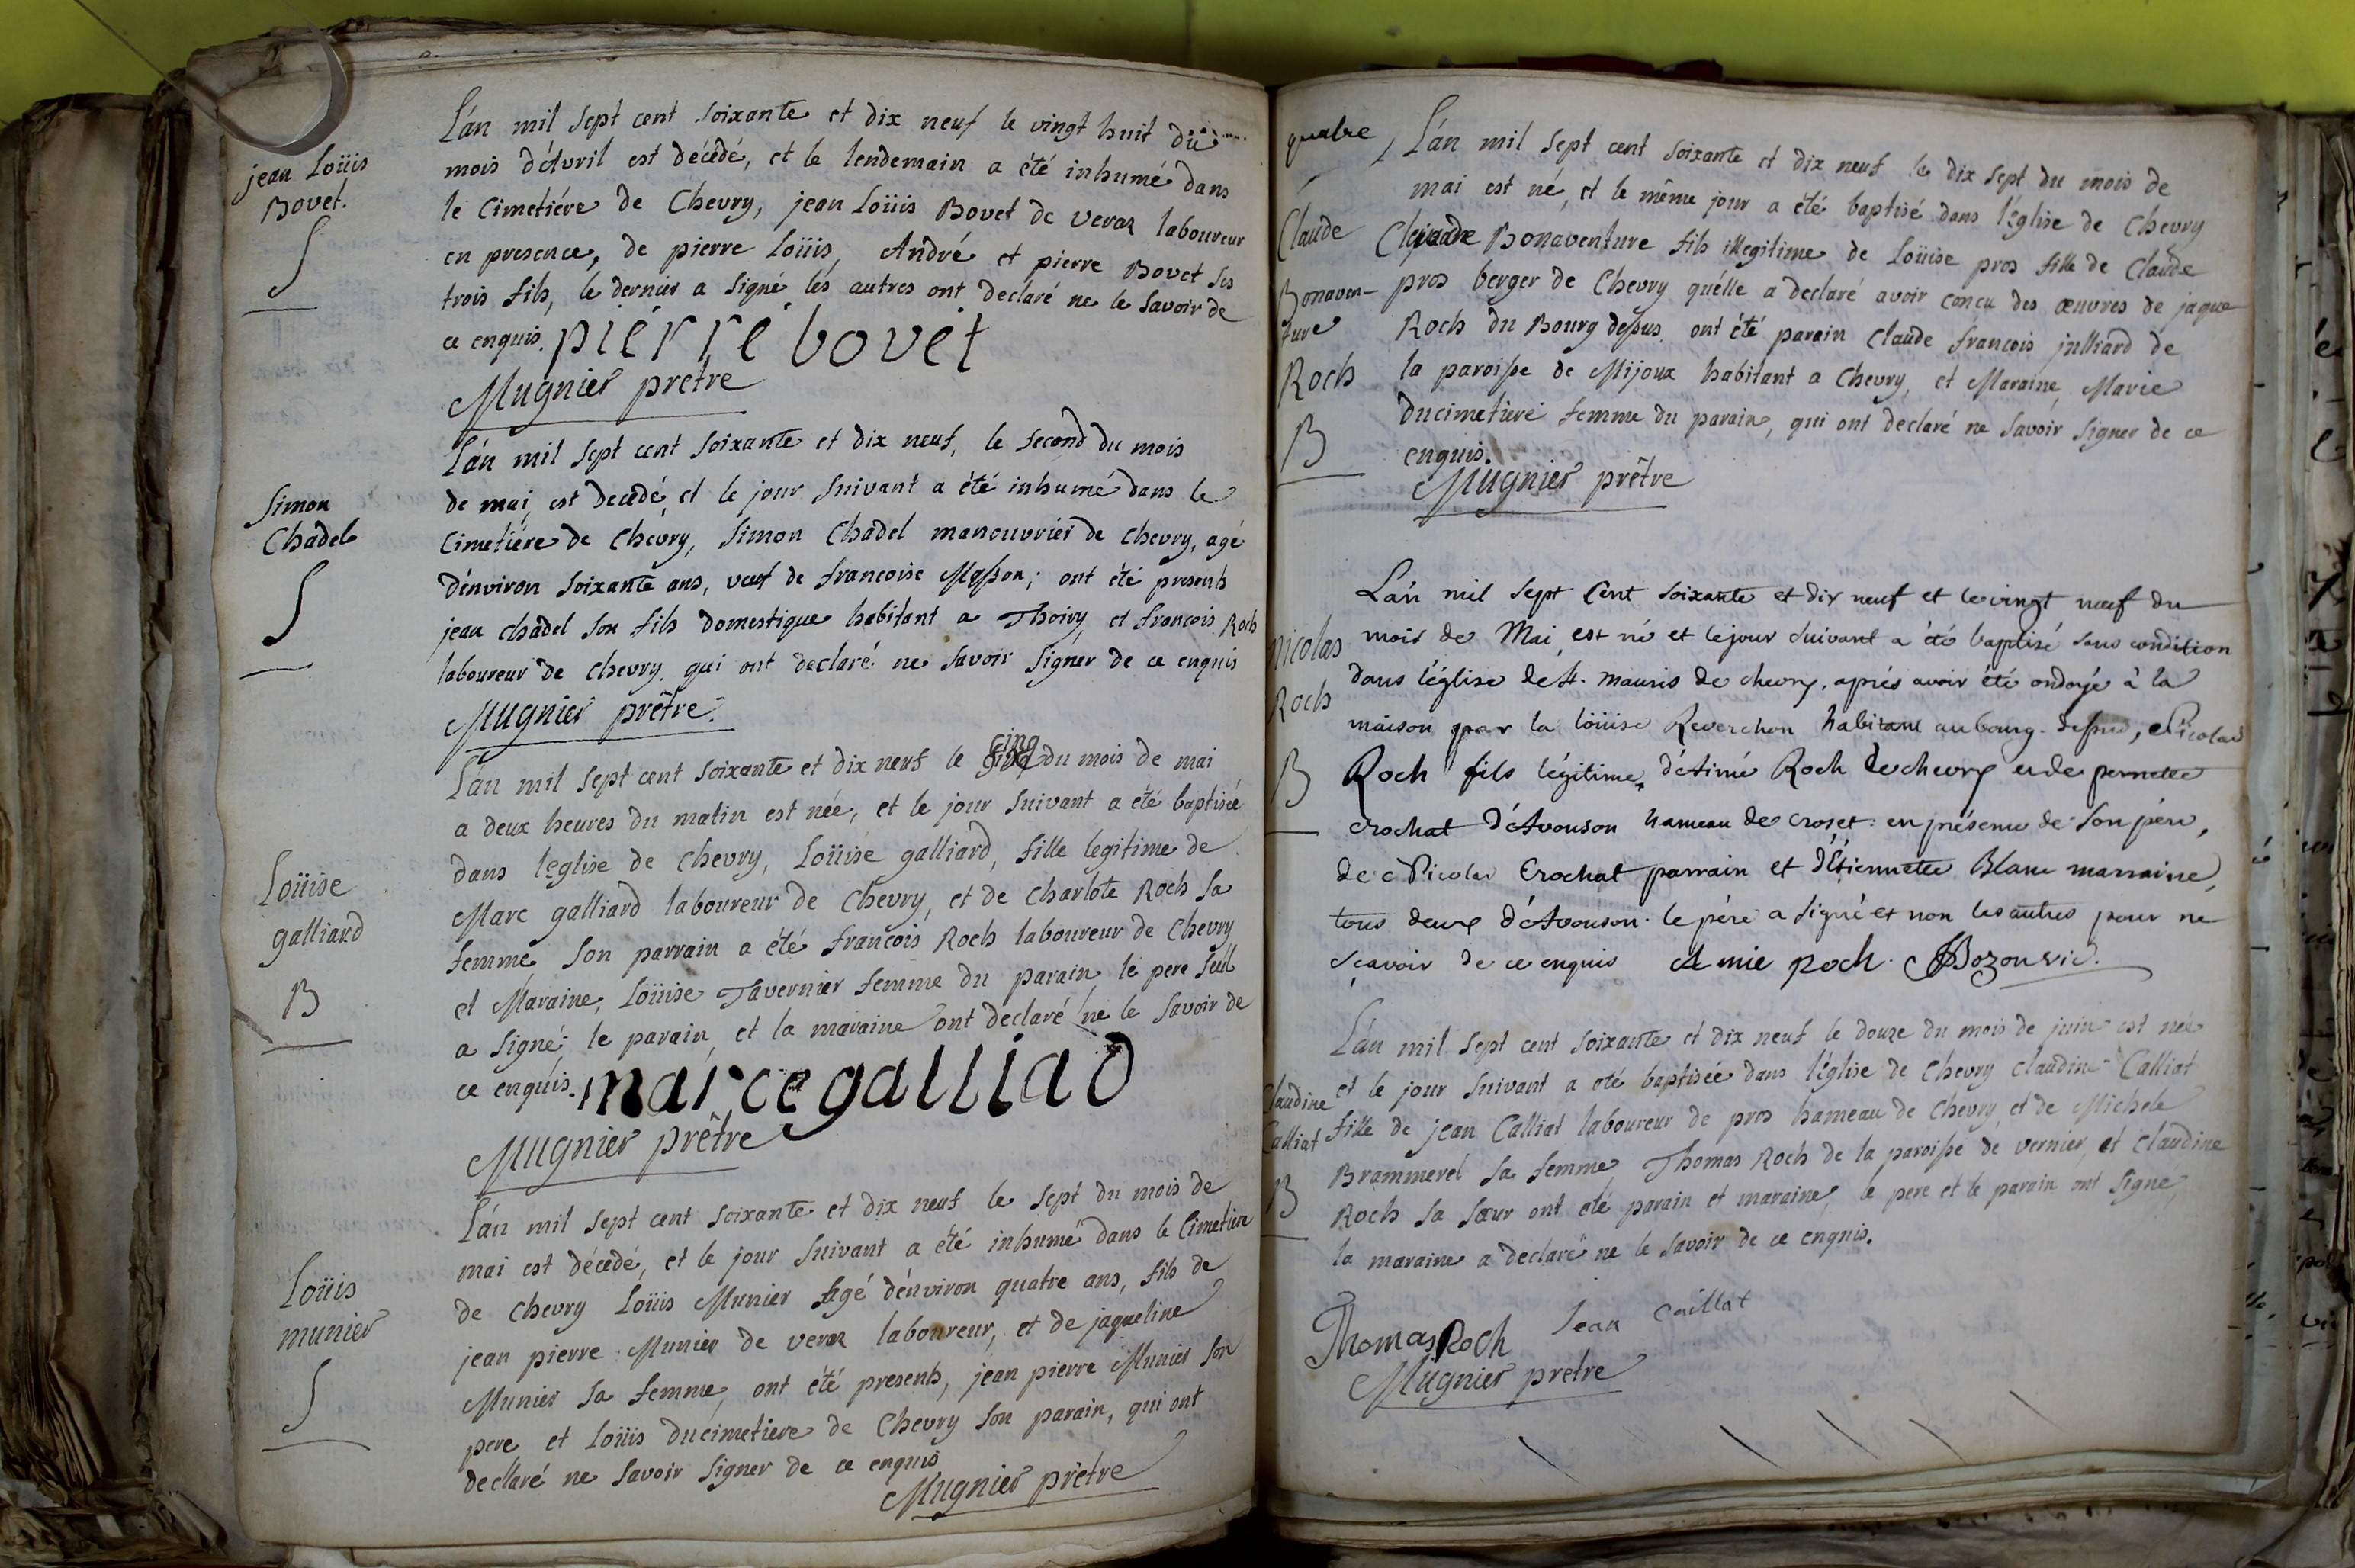 jean Loüis
Bovet.
S
L'an mil sept cent soixante et dix neuf le vingt huit du
mois d'Avril est décédé, et le lendemain a été inhumé dans
le Cimetiére de Chevry, jean Loüis Bovet de veraz laboureur
en presence, de pierre Loüis, André et pierre Bovet ses
trois fils, le dernier a signé les autres ont declaré ne le savoir de
ce enquis. pierre bovet
Mugnier prêtre
Simon
Chadel
S
L'an mil sept cent soixante et dix neuf, le second du mois
de mai, est decedé, et le jour suivant a été inhumé dans le
Cimetiére de Chevry, Simon Chadel manouvrier de Chevry, agé
d'environ soixante ans, veuf de francoise Masson; ont été presents
jean chadel son fils domestique habitant a Thoiry, et francois Roch
laboureur de Chevry. qui ont declaré ne savoir signer de ce enquis
Mugnier prêtre.
Loüise
galliard
B
L'an mil sept cent soixante et dix neuf le cinq du mois de mai
a deux heures du matin est née, et le jour suivant a été baptisée
dans leglise de Chevry, Loüise galliard, fille legitime de
Marc galliard laboureur de Chevry, et de Charlote Roch sa
femme son parrain a été francois Roch laboureur de Chevry
et Maraine, Loüise Tavernier femme du parain, le pere seul
a signé, le parain, et la maraine ont declaré ne le savoir de
ce enquis. marce galliad
Mugnier prêtre
Loüis
munier
S
L'an mil sept cent soixante et dix neuf le sept du mois de
mai est décédé, et le jour suivant a été inhumé dans le Cimetiere
de Chevry Loüis Munier agé d'environ quatre ans, fils de
jean pierre Munier de veraz laboureur, et de jaqueline
Munier sa femme, ont été presents, jean pierre Munier son
pere et Loüis ducimetiere de Chevry son parain, qui ont
declaré ne savoir signer de ce enquis
Mugnier prêtre
quatre
Claude
Bonaven-
ture
Roch
B
L'an mil sept cent soixante et dix neuf le dix sept du mois de
mai est né, et le même jour a été baptisé dans l'église de Chevry
Claude Bonaventure fils illegitime de Loüise pros fille de Claude
pros berger de Chevry qu'elle a declaré avoir concu des œuvres de jaque
Roch du Bourg dessus. ont été parain Claude francois julliard de
la paroisse de Mijoux habitant a Chevry, et Maraine, Marie
ducimetiere femme du parain, qui ont declaré ne savoir signer de ce
enquis.
Mugnier prêtre
Nicolas
Roch
B
L'an mil sept Cent soixante et dix neuf et le vingt neuf du
mois de Mai, est né et le jour suivant a été baptisé sans condition
dans l'église de st. mauris de chevry, aprés avoir été ondoyé à la
maison par la loüise Reverchon habitant au bourg-dessus, Nicolas
Roch fils légitime d'Aimé Roch de chevry et de pernette
crochat d'Avouson hameau de Crozet: en présence de son père,
de Nicolas Crochat parrain et d'Étiennette Blanc marraine,
tous deux d'Avouson. le pére a signé et non les autres pour ne
sçavoir de ce enquis Amie roch. Bozonvic.
Claudine
Calliat
B
L'an mil sept cent soixante et dix neuf le douze du mois de juin est née
et le jour suivant a été baptisée dans l'église de Chevry claudine Calliat
fille de jean Calliat laboureur de pros hameau de Chevry, et de Michele
Brammerel sa femme, Thomas Roch de la paroisse de vernier, et claudine
Roch sa sœur ont été parain et maraine, le pere et le parain ont signé,
la maraine a declaré ne le savoir de ce enquis.
Thomas Roch Jean Caillat
Mugnier prêtre